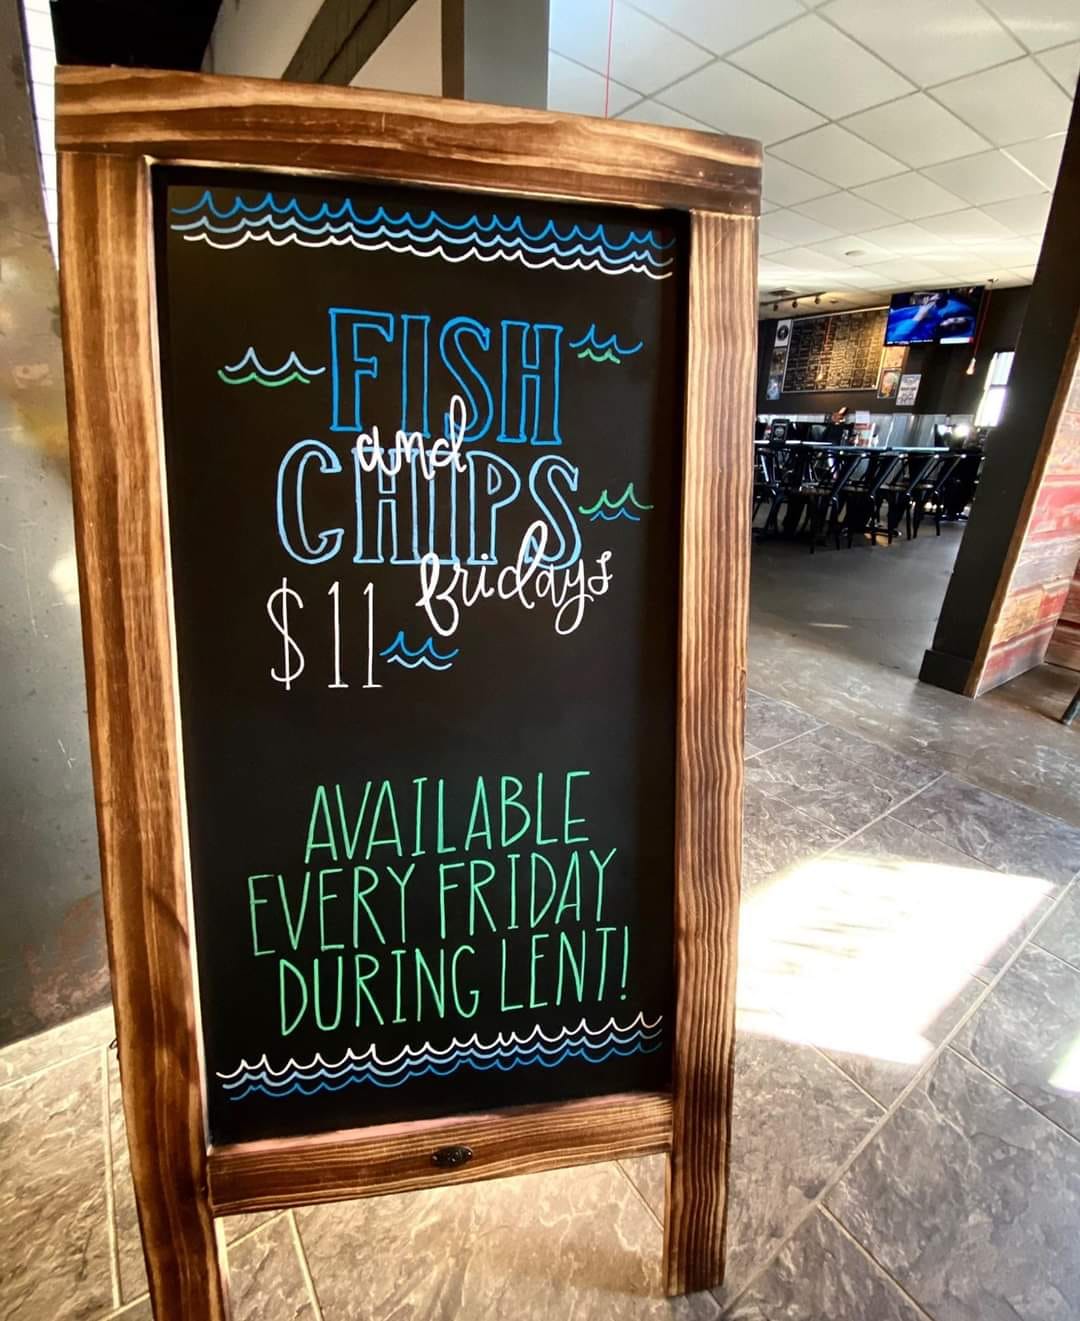 FISH
and
CHIPS
fridays
$11
AVAILABLE
EVERY FRIDAY
DURING LENT!